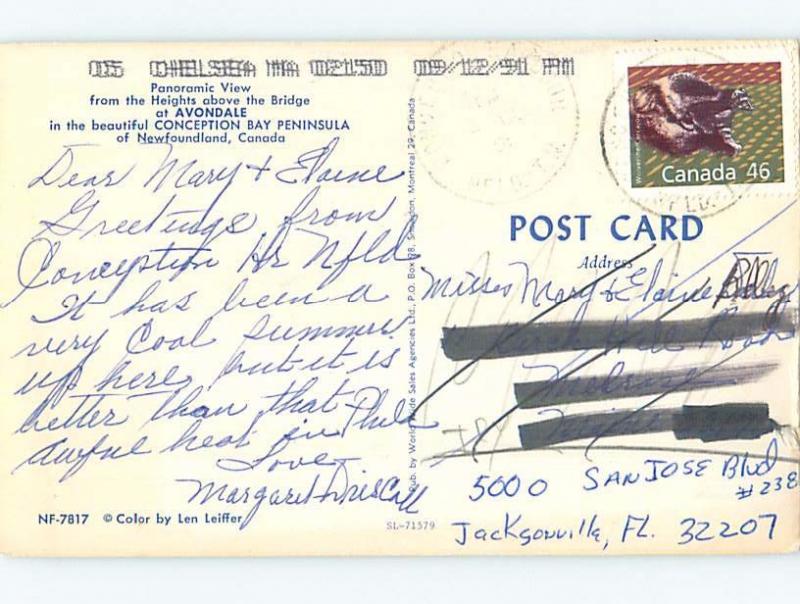 05 CHELSEA MA 02150 09/12/91 PM
Panoramic View
from the Heights above the Bridge
at AVONDALE
in the beautiful CONCEPTION BAY PENINSULA
of Newfoundland, Canada
Dear Mary + Elaine
Greetings from
Conception Hr Nfld
It has been a
very Cool summer
up here but it is
better than that
awful heat in Phila
Love
Margaret Driscoll
NF-7817 © Color by Len Leiffer
SL-71579
Pub. by World Wide Sales Agencies Ltd., P.O. Box 78, Station, Montreal 29, Canada
Wolverine
Canada 46
POST CARD
Address
Misses Mary & Elaine
Melrose
5000 SAN JOSE Blvd
#238
Jacksonville, FL. 32207